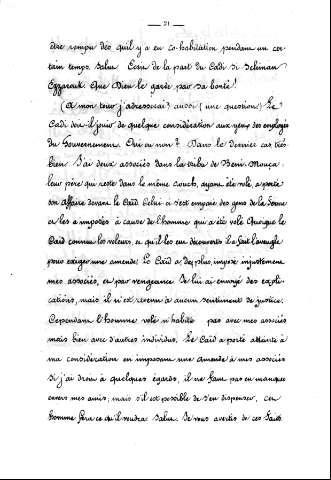 — 21 —
être rompu dès qu'il y a eu co-habitation pendant un cer-
tain temps. Salut. Écrit de la part du Cadi Si Seliman
Ezzarouk. Que Dieu le garde par sa bonté!
(À mon tour j'adresserai, aussi (une question) Le
Cadi doit-il jouir de quelque considération aux yeux des employés
du Gouvernement. Oui ou non? Dans le dernier cas très
bien. J'ai deux associés dans la tribu de Beni-Mouça.
leur père qui reste dans le même douch, ayant été volé, a porté
son affaire devant le Caïd. Celui ci s'est emparé des gens de la Ferme
et les a imposés à cause de l'homme qui a été volé. Quoique le
Caïd connut les voleurs, et qu'il les eut découverts il a fait l'aveugle
pour exiger une amende. Le Caïd a, de plus, imposé injustement
mes associés, et par vengeance. Je lui ai envoyé des expli-
cations, mais il n'est revenu à aucun sentiment de justice.
Cependant l'homme volé n'habite pas avec mes associés
mais bien avec d'autres individus. Le Caïd a porté atteinte à
ma considération en imposant une amende à mes associés
si j'ai droit à quelques égards, il ne faut pas en manquer
envers mes amis; mais s'il est possible de s'en dispenser, cet
homme fera ce qu'il voudra. Salut. Je vous avertis de ces faits